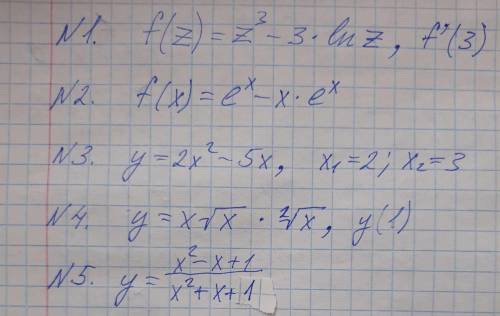 N1. f(z) = z³ - 3 · ln z, f'(3)
N2. f(x) = eˣ - x · eˣ
N3. y = 2x² - 5x, x₁ = 2; x₂ = 3
N4. y = x√x · ²√x, y(1)
N5. y = (x² - x + 1)/(x² + x + 1)